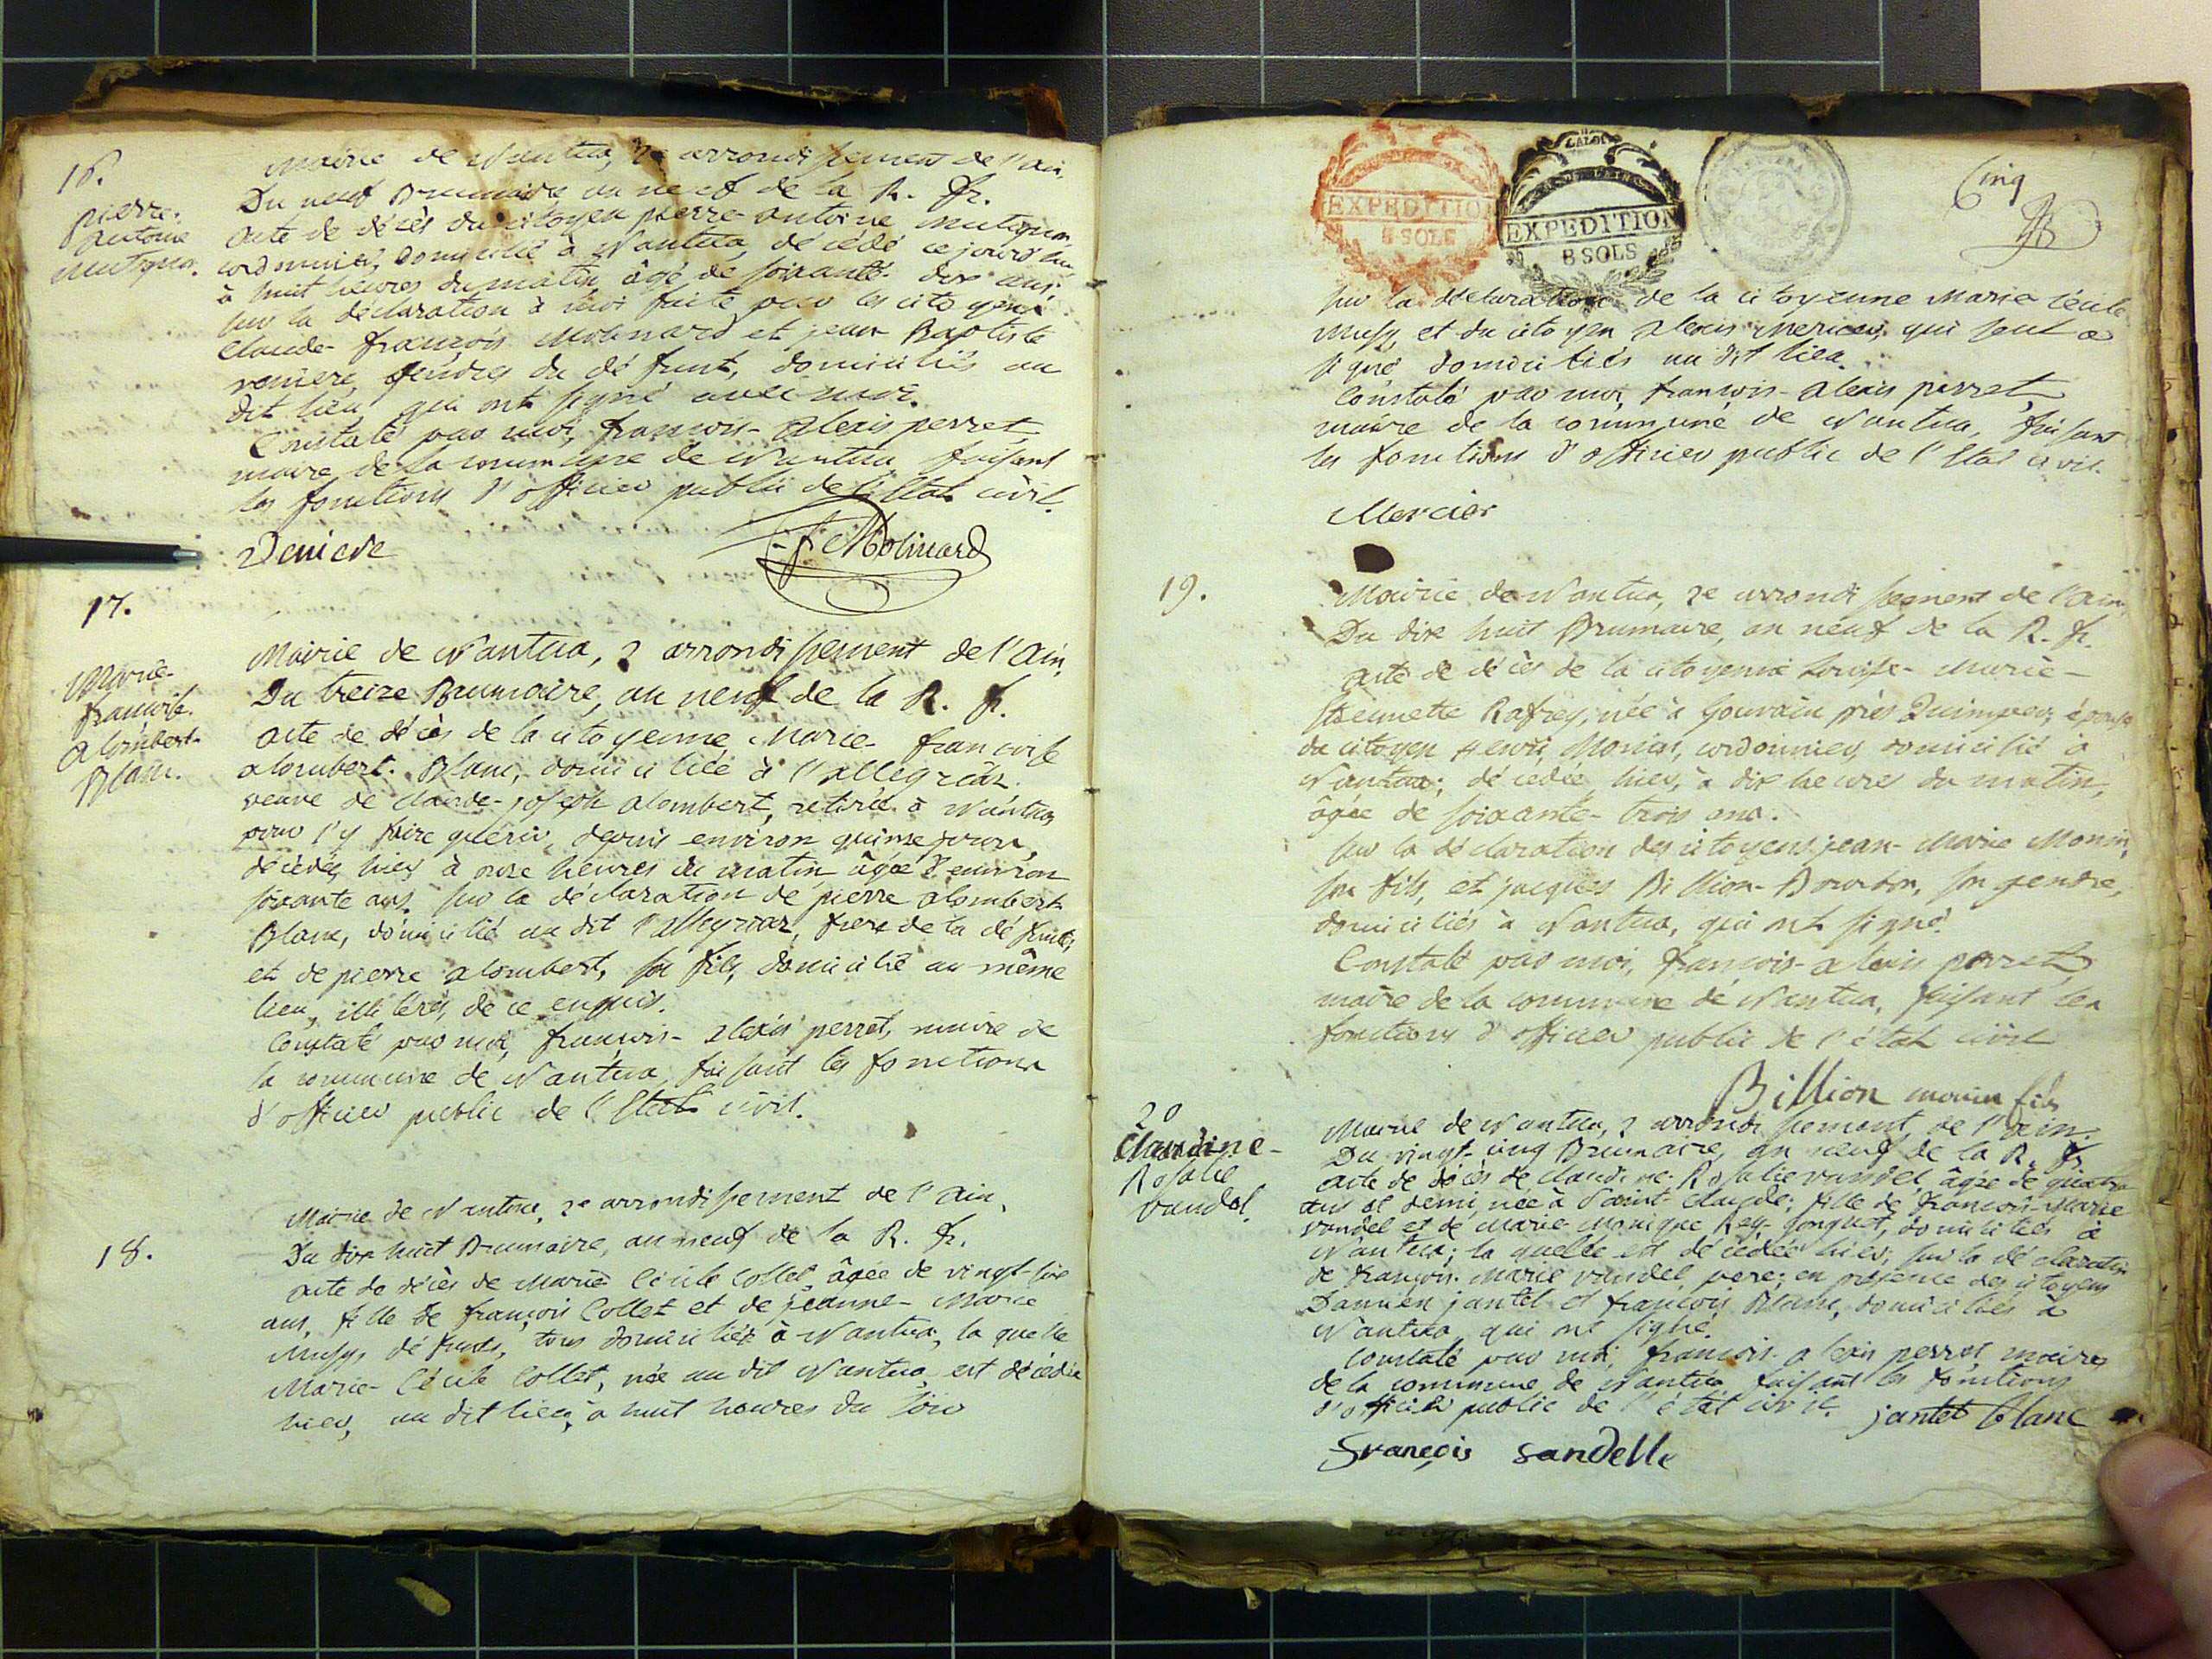 16.
pierre-
antoine
Mairie de Nantua, 2e arrondissement de l'ain,
Du neuf Brumaire an neuf de la R. fr.
acte de décès du citoyen pierre-antoine
cordonnier, domicilié à Nantua, décédé ce jourd'hui
à huit heures du matin, âgé de soixante-dix ans,
sur la déclaration à moi faite par les citoyens
Claude-françois Molinard et jean Baptiste
gendres du défunt, domiciliés au
dit lieu qui ont signé avec moi.
Constaté par moi, françois-alexis perret
maire de la commune de Nantua faisant
les fonctions d'officier public de l'Etat civil.
Deniere
C f Molinard
17.
Marie-
francoise
alombert-
Blanc.
Mairie de Nantua, 2 arrondissement de l'Ain,
Du treize Brumaire, an neuf de la R. fr.
acte de décès de la citoyenne Marie-francoise
alombert-Blanc, domiciliée à
veuve de claude-joseph alombert, retirée à Nantua
pour s'y faire guérir, depuis environ quinze jours,
décédée, hier à onze heures du matin, âgée d'environ
soixante ans. sur la déclaration de pierre alombert
Blanc, domicilié au dit frere de la défunte,
et de pierre alombert, son fils, domicilié au même
lieu, illitérés, de ce enquis.
Constaté par moi, françois-alexis perret, maire de
la commune de Nantua, faisant les fonctions
d'officier public de l'Etat civil.
18.
Mairie de Nantua, 2e arrondissement de l'Ain,
Du dix huit Brumaire, an neuf de la R. fr.
acte de décès de Marie Cécile Collet, âgée de vingt-six
ans, fille de françois Collet et de jeanne-Marie
Mussy, défunts, tous domiciliés à Nantua, la quelle
Marie-Cécile Collet, née au dit Nantua est décédée
hier, au dit lieu, à huit heures du soir
EXPEDITION
8 SOLS
EXPEDITION
8 SOLS
Cinq
sur la déclaration de la citoyenne Marie Cécile
Mussy, et du citoyen alexis Mercier, qui seul a
signé domiciliés au dit lieu.
Constaté par moi, françois-alexis perret,
maire de la commune de Nantua, faisant
les fonctions d'officier public de l'Etat civil.
Mercier
19.
Mairie de Nantua, 2e arrondissement de l'Ain,
Du dix huit Brumaire, an neuf de la R. fr.
acte de décès de la citoyenne Louise-Marie-
née à près Quimper, épouse
du citoyen henri, Monin, cordonnier, domicilié à
Nantua; décédée, hier, à dix heures du matin,
âgée de soixante-trois ans.
sur la déclaration des citoyens jean-Marie Monin,
son fils, et jacques Billion-Bourbon, son gendre,
domiciliés à Nantua, qui ont signé.
Constaté par moi, françois-alexis perret,
maire de la commune de Nantua, faisant les
fonctions d'officier public de l'état civil
Billion monin fils
20
Claudine-
Rosalie
vandel.
Mairie de Nantua, 2 arrondissement de l'ain.
Du vingt-cinq Brumaire, an neuf de la R. fr.
acte de décès de claudine-Rosalie vandel, âgée de quatre
ans et demi, née à Saint-claude; fille de françois-Marie
vandel et de Marie Monique domiciliés à
Nantua; la quelle est décédée hier; sur la déclaration
de françois-Marie vandel, père; en présence des citoyens
Damien jantet et françois Blanc, domiciliés à
Nantua qui ont signé.
Constaté par moi françois-alexis perret, maire
de la commune de Nantua faisant les fonctions
d'officier public de l'état civil. jantet blanc
françois vandelle